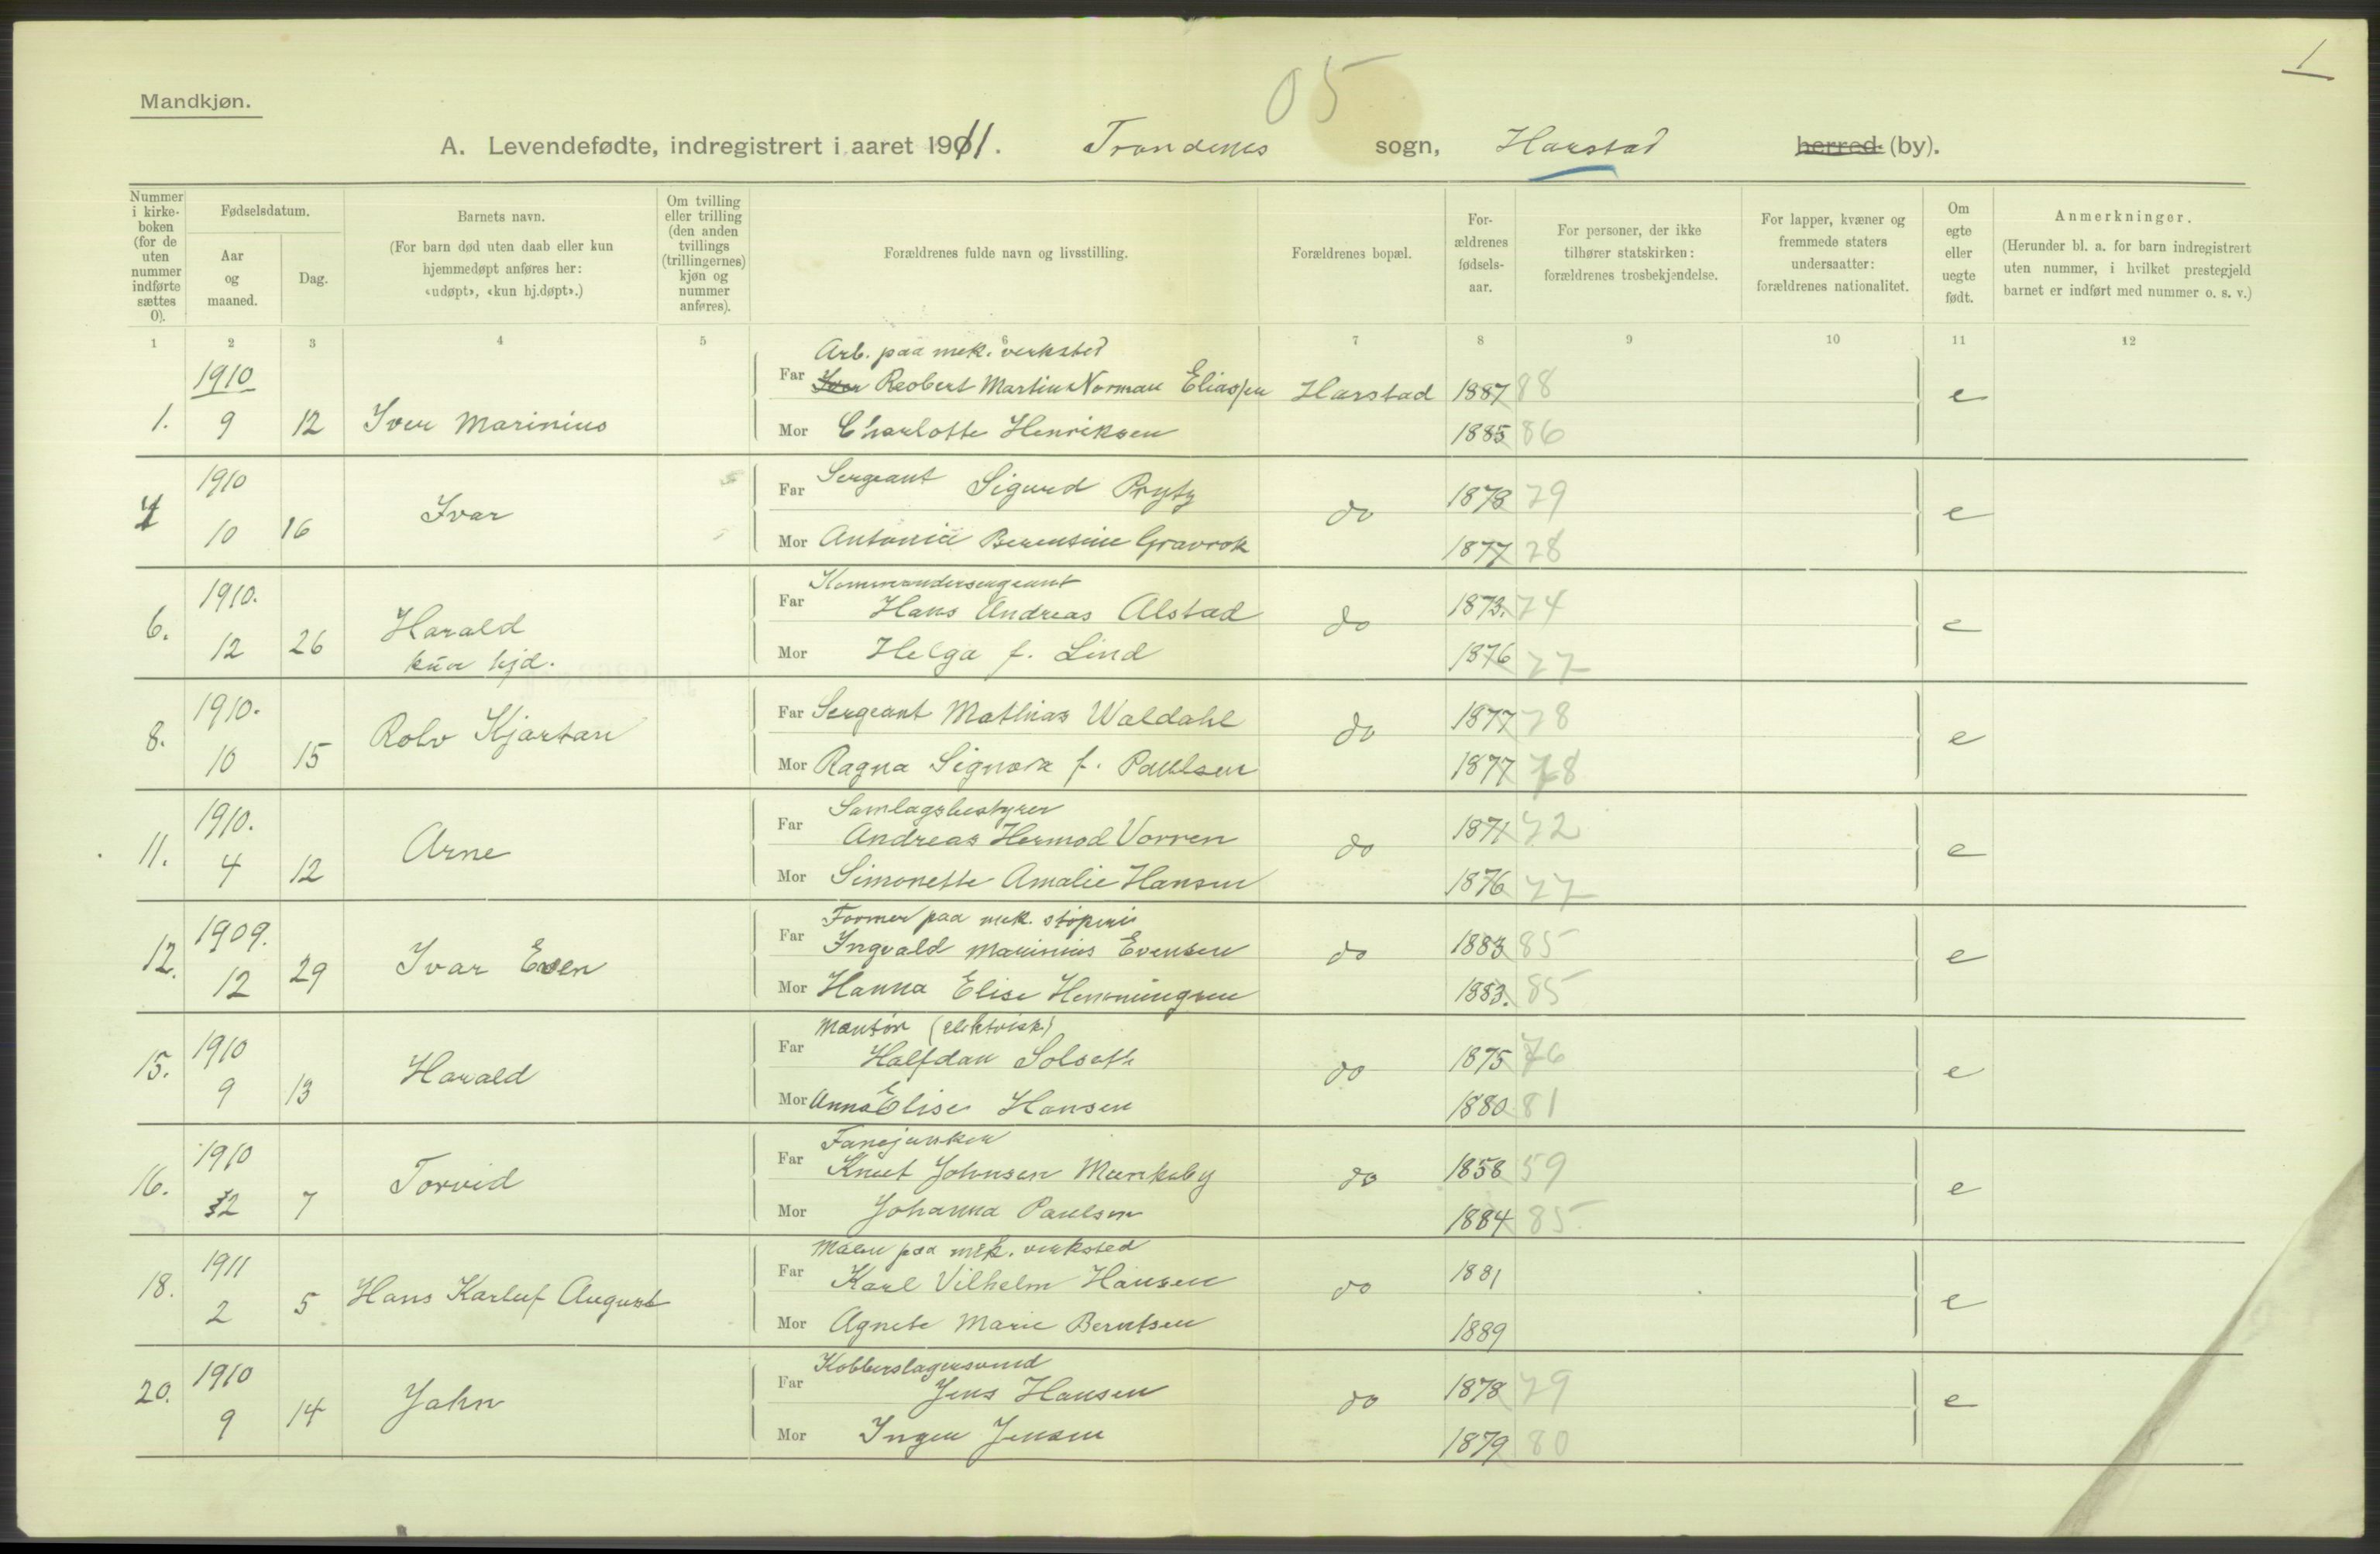 1
05
Mandkjøn.
A. Levendefødte, indregistrert i aaret 1911. Trondenes sogn, Harstad herred (by).
Nummer i kirkeboken (for de uten nummer indførte sættes 0).
Fødselsdatum.
Aar og maaned.
Dag.
Barnets navn.
(For barn død uten daab eller kun hjemmedøpt anføres her: «udøpt», «kun hj.døpt».)
Om tvilling eller trilling (den anden tvillings (trillingernes) kjøn og nummer anføres).
Forældrenes fulde navn og livsstilling.
Forældrenes bopæl.
Forældrenes fødselsaar.
For personer, der ikke tilhører statskirken: forældrenes trosbekjendelse.
For lapper, kvæner og fremmede staters undersaatter: forældrenes nationalitet.
Om egte eller uegte født.
Anmerkninger.
(Herunder bl. a. for barn indregistrert uten nummer, i hvilket prestegjeld barnet er indført med nummer o. s. v.)
1 2 3 4 5 6 7 8 9 10 11 12
Arb. paa mek. verksted
1910 Far Iver Reobert Martin Norman Eliassen Harstad 1887 88
1. 9 12 Iver Marinius e
Mor Charlotte Henriksen 1885 86
1910 Far Sergeant Sigurd Pryty 1878 79
4 10 16 Ivar do e
Mor Antonie Berentine Gravrok 1877 78
Kommandersergeant
1910. Far Hans Andreas Alstad 1873. 74
6. 12 26 Harald do e
kun hjd. Mor Helga f. Lind 1876 77
1910. Far Sergeant Mathias Waldahl 1877 78
8. 10 15 Rolv Kjartan do e
Mor Ragna Signora f. Paulsen 1877 78
Samlagsbestyrer
1910. Far Andreas Hermod Vorren 1871 72
11. 4 12 Arne do e
Mor Simonette Amalie Hansen 1876 77
Former paa mek. støperi
1909. Far Ingvald Marinius Evensen 1883 85
12. 12 29 Ivar Even do e
Mor Hanna Elise Henningsen 1883. 85
Montør (elektrisk)
1910 Far Halfdan Solseth 1875 76
15. 9 13 Harald do e
Mor Anna Elise Hansen 1880 81
Fanejunker
1910 Far Knut Johnsen Munkeby 1858 59
16. 12 7 Torvid do e
Mor Johanna Paulsen 1884 85
Maler paa mek. verksted
1911 Far Karl Vilhelm Hansen 1881
18. 2 5 Hans Karluf August do e
Mor Agnete Marie Berntsen 1889
Kobberslagersvend
1910 Far Jens Hansen 1878 79
20. 9 14 John do e
Mor Inger Jensen 1879 80